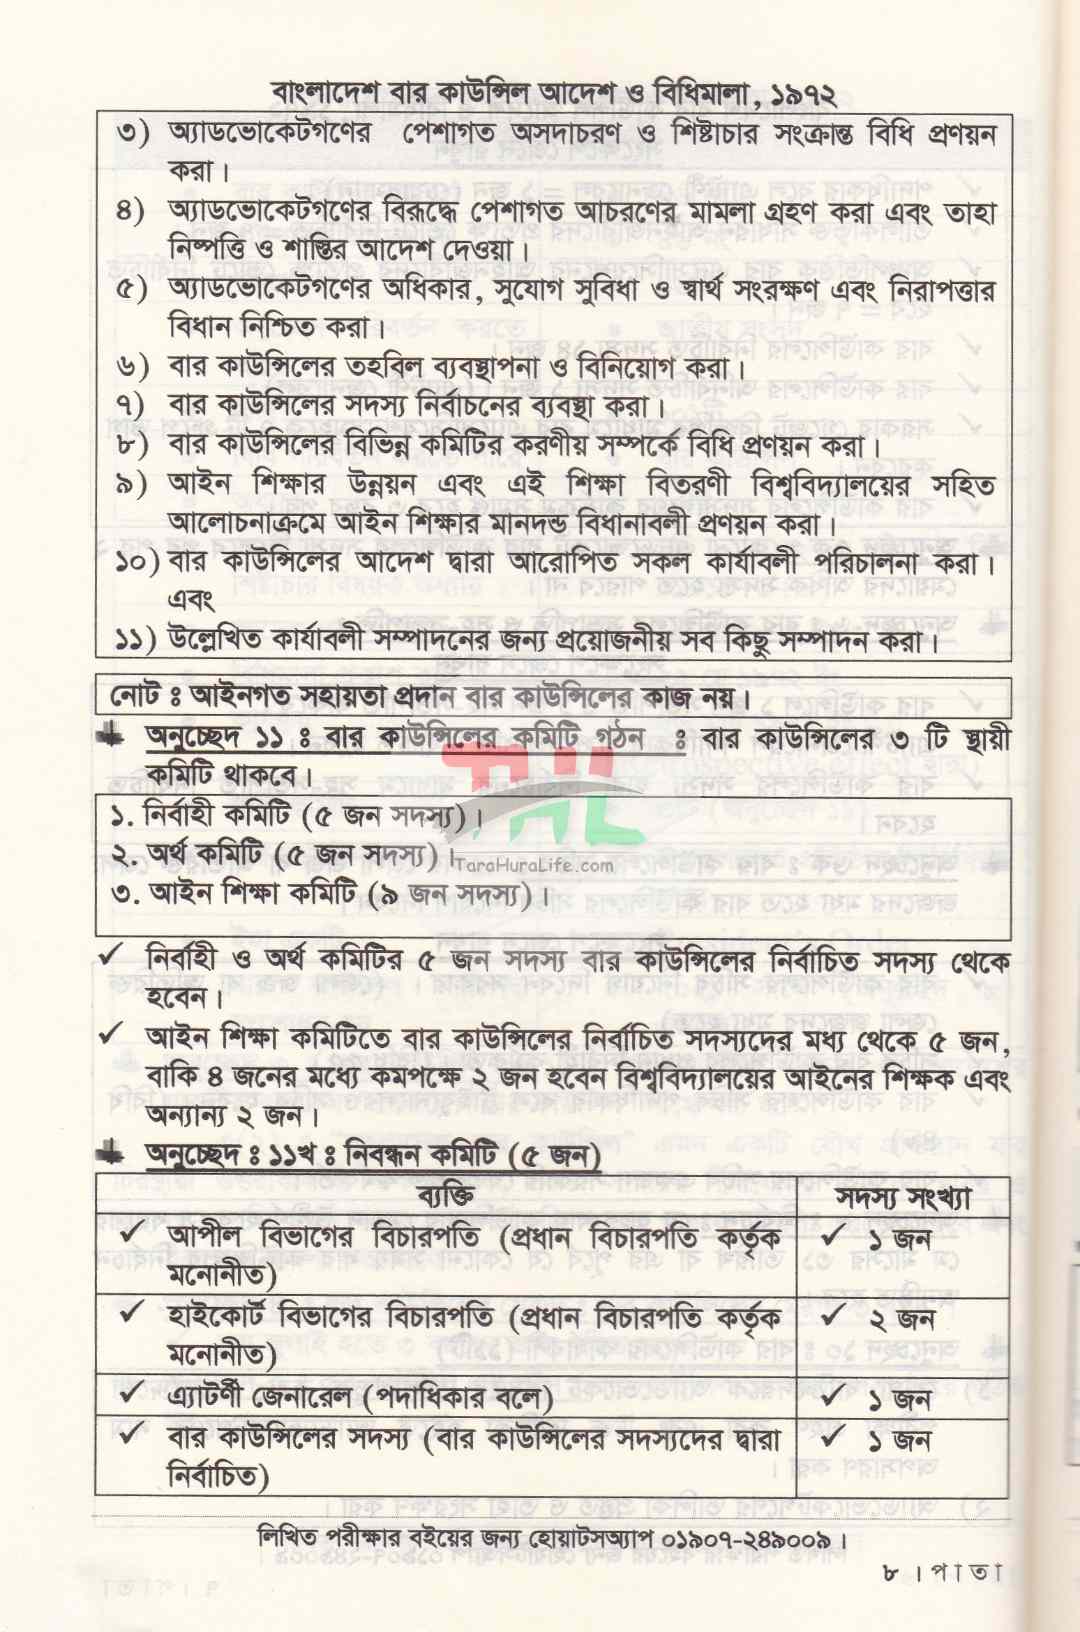 বাংলাদেশ বার কাউন্সিল আদেশ ও বিধিমালা, ১৯৭২
৩) অ্যাডভোকেটগণের পেশাগত অসদাচরণ ও শিষ্টাচার সংক্রান্ত বিধি প্রণয়ন
করা।
৪) অ্যাডভোকেটগণের বিরূদ্ধে পেশাগত আচরণের মামলা গ্রহণ করা এবং তাহা
নিষ্পত্তি ও শাস্তির আদেশ দেওয়া।
৫) অ্যাডভোকেটগণের অধিকার, সুযোগ সুবিধা ও স্বার্থ সংরক্ষণ এবং নিরাপত্তার
বিধান নিশ্চিত করা।
৬) বার কাউন্সিলের তহবিল ব্যবস্থাপনা ও বিনিয়োগ করা।
৭) বার কাউন্সিলের সদস্য নির্বাচনের ব্যবস্থা করা।
৮) বার কাউন্সিলের বিভিন্ন কমিটির করণীয় সম্পর্কে বিধি প্রণয়ন করা।
৯) আইন শিক্ষার উন্নয়ন এবং এই শিক্ষা বিতরণী বিশ্ববিদ্যালয়ের সহিত
আলোচনাক্রমে আইন শিক্ষার মানদন্ড বিধানাবলী প্রণয়ন করা।
১০) বার কাউন্সিলের আদেশ দ্বারা আরোপিত সকল কার্যাবলী পরিচালনা করা।
এবং
১১) উল্লেখিত কার্যাবলী সম্পাদনের জন্য প্রয়োজনীয় সব কিছু সম্পাদন করা।
নোট ঃ আইনগত সহায়তা প্রদান বার কাউন্সিলের কাজ নয়।
অনুচ্ছেদ ১১ ঃ বার কাউন্সিলের কমিটি গঠন ঃ বার কাউন্সিলের ৩ টি স্থায়ী
কমিটি থাকবে।
১. নির্বাহী কমিটি (৫ জন সদস্য)।
২. অর্থ কমিটি (৫ জন সদস্য)।
TaraHuraLife.com
৩. আইন শিক্ষা কমিটি (৯ জন সদস্য)।
✓ নির্বাহী ও অর্থ কমিটির ৫ জন সদস্য বার কাউন্সিলের নির্বাচিত সদস্য থেকে
হবেন।
✓ আইন শিক্ষা কমিটিতে বার কাউন্সিলের নির্বাচিত সদস্যদের মধ্য থেকে ৫ জন,
বাকি ৪ জনের মধ্যে কমপক্ষে ২ জন হবেন বিশ্ববিদ্যালয়ের আইনের শিক্ষক এবং
অন্যান্য ২ জন।
অনুচ্ছেদ ঃ ১১খ ঃ নিবন্ধন কমিটি (৫ জন)
ব্যক্তি সদস্য সংখ্যা
✓ আপীল বিভাগের বিচারপতি (প্রধান বিচারপতি কর্তৃক ✓ ১ জন
মনোনীত)
✓ হাইকোর্ট বিভাগের বিচারপতি (প্রধান বিচারপতি কর্তৃক ✓ ২ জন
মনোনীত)
✓ এ্যাটর্ণী জেনারেল (পদাধিকার বলে) ✓ ১ জন
✓ বার কাউন্সিলের সদস্য (বার কাউন্সিলের সদস্যদের দ্বারা ✓ ১ জন
নির্বাচিত)
লিখিত পরীক্ষার বইয়ের জন্য হোয়াটসঅ্যাপ ০১৯০৭-২৪৯০০৯।
৮ । পাতা